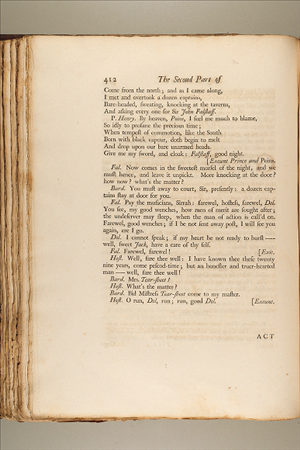 412 The Second Part of
Come from the north; and as I came along,
I met and overtook a dozen captains,
Bare-headed, sweating, knocking at the taverns,
And asking every one for Sir John Falstaff.
P. Henry. By heaven, Poins, I feel me much to blame,
So idly to profane the precious time;
When tempest of commotion, like the South
Born with black vapour, doth begin to melt
And drop upon our bare unarmed heads.
Give me my sword, and cloak: Falstaff, good night.
[Exeunt Prince and Poins.
Fal. Now comes in the sweetest morsel of the night, and we
must hence, and leave it unpickt. More knocking at the door?
how now? what's the matter?
Bard. You must away to court, Sir, presently: a dozen cap-
tains stay at door for you.
Fal. Pay the musicians, Sirrah: farewel, hostess, farewel, Dol.
You see, my good wenches, how men of merit are sought after;
the undeserver may sleep, when the man of action is call'd on.
Farewel, good wenches; if I be not sent away post, I will see you
again, ere I go.
Dol. I cannot speak; if my heart be not ready to burst —
well, sweet Jack, have a care of thy self.
Fal. Farewel, farewel! [Exit.
Host. Well, fare thee well: I have known thee these twenty
nine years, come pescod-time; but an honester and truer-hearted
man — well, fare thee well!
Bard. Mrs. Tear-sheet!
Host. What's the matter?
Bard. Bid Mistress Tear-sheet come to my master.
Host. O run, Dol, run; run, good Dol. [Exeunt.
ACT